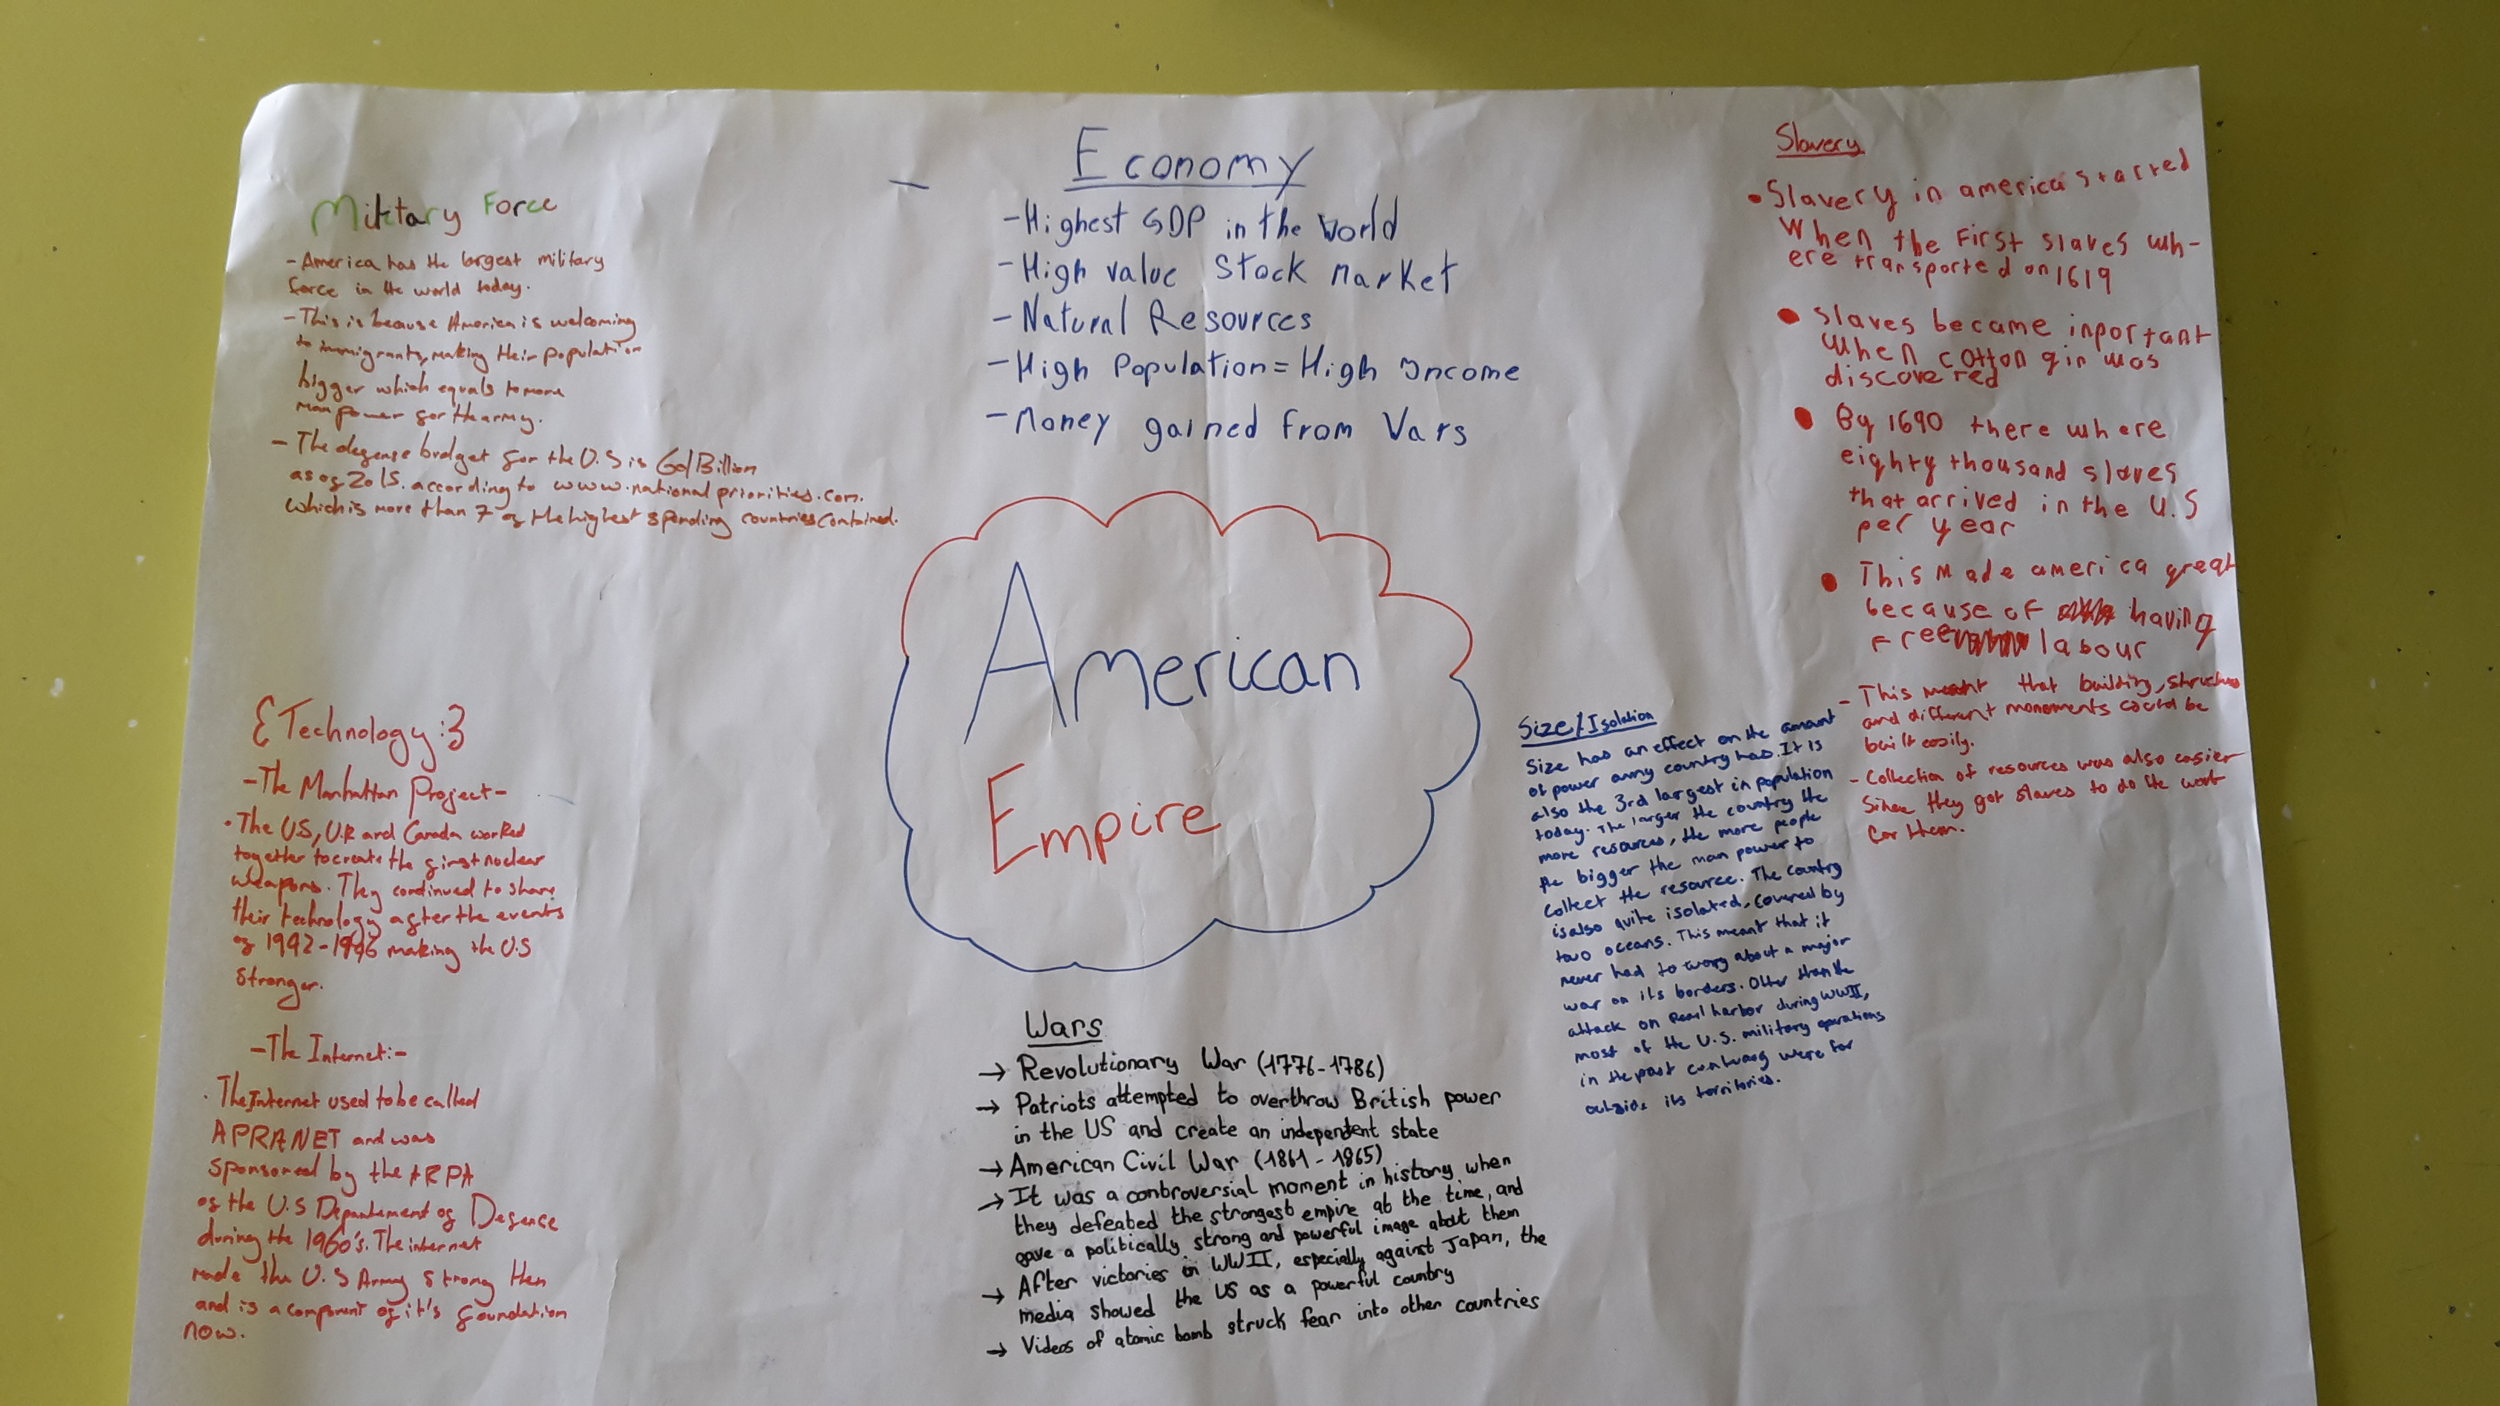 Military Force
- America has the largest military
force in the world today.
- This is because America is welcoming
to immigrants, making their population
bigger which equals to more
man power for the army.
- The defense budget for the U.S is 601 Billion
as of 2015. according to www.nationalpriorities.com.
which is more than 7 of the highest spending countries combined.
{Technology:}
- The Manhattan Project -
• The US, U.K and Canada worked
together to create the first nuclear
weapons. They continued to share
their technology after the events
of 1942-1946 making the U.S
stronger.
- The Internet:-
• The Internet used to be called
APRANET and was
sponsored by the ARPA
of the U.S Departement of Defence
during the 1960's. The internet
made the U.S Army strong then
and is a component of it's foundation
now.
Economy
- Highest GDP in the World
- High value Stock Market
- Natural Resources
- High Population = High Income
- Money gained from Vars
American
Empire
Wars
→ Revolutionary War (1776-1786)
→ Patriots attempted to overthrow British power
in the US and create an independent state
→ American Civil War (1861-1865)
→ It was a controversial moment in history when
they defeated the strongest empire at the time, and
gave a politically strong and powerful image about them
→ After victories in WWII, especially against Japan, the
media showed the US as a powerful country
→ Videos of atomic bomb struck fear into other countries
Size/Isolation
Size has an effect on the amount
of power any country has. It is
also the 3rd largest in population
today. The larger the country the
more resources, the more people
the bigger the man power to
collect the resource. The country
is also quite isolated, covered by
two oceans. This meant that it
never had to worry about a major
war on its borders. Other than the
attack on Pearl harbor during WWII,
most of the U.S. military operations
in the past century were far
outside its territories.
Slavery
• Slavery in america starred
When the First slaves wh-
ere transported on 1619
• Slaves became inportant
when cotton gin was
discovered
• By 1690 there where
eighty thousand slaves
that arrived in the U.S
per year
• This Made america great
because of having
Free labour
- This meant that building, structures
and different monoments could be
built easily.
- Collection of resources was also easier
Since they got slaves to do the work
for them.